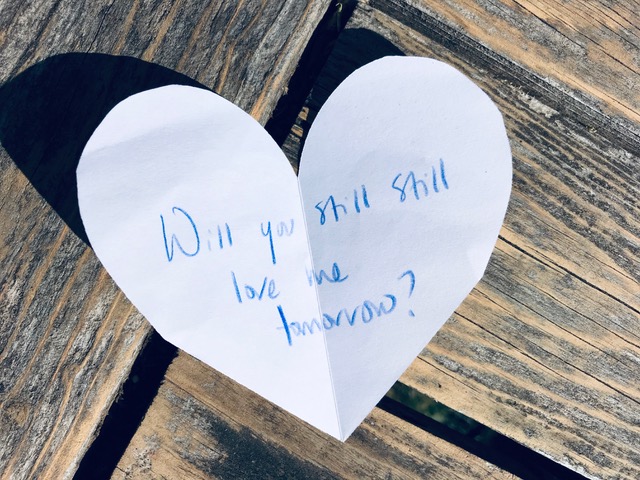 Will you still still
love me
tomorrow?